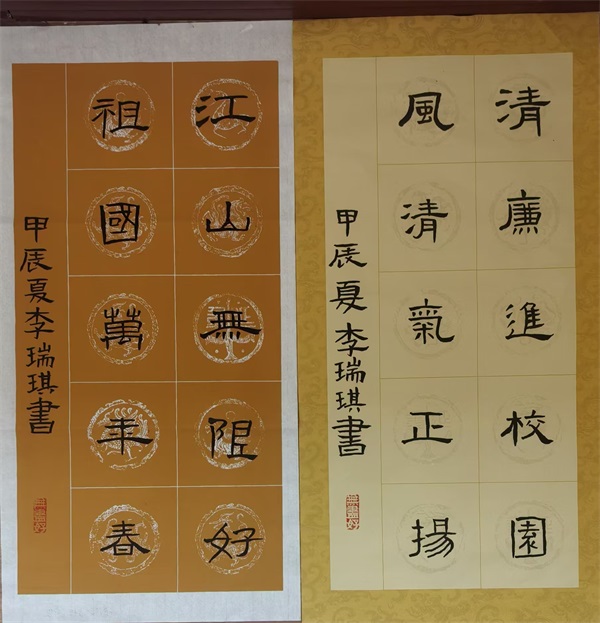 清廉進校園
風清氣正揚
甲辰夏李瑞琪書
江山無限好
祖國萬年春
甲辰夏李瑞琪書